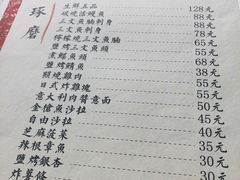 琢磨
生鮮五品 128元
碳燒活鰻魚 88元
三文魚腩刺身 88元
三文魚刺身 78元
檸檬燒三文魚腩 65元
鹽烤三文魚頭 55元
煮鯛魚頭 68元
鹽烤鯖魚 38元
照燒雞肉 55元
日式炸雞塊 55元
意大利肉醬意面 50元
金槍魚沙拉 45元
自由沙拉 40元
芝麻菠菜 35元
辣根章魚 30元
鹽烤銀杏 30元
炸薯條